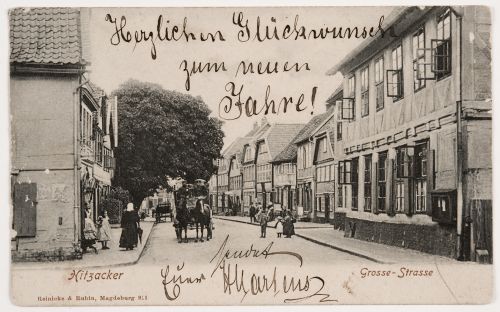 Herzlichen Glückwunsch
zum neuen
Jahre!
sendet
Euer H Martens
Hitzacker
Grosse-Strasse
Reinicke & Rubin, Magdeburg 911